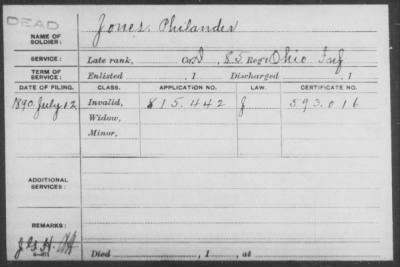 DEAD
NAME OF SOLDIER: Jones, Philander
SERVICE: Late rank, Co. I, 85 Reg't Ohio Inf
TERM OF SERVICE: Enlisted , 1 Discharged , 1
DATE OF FILING. CLASS. APPLICATION NO. LAW. CERTIFICATE NO.
1890, July 12 Invalid, 815.442 J 593.016
Widow,
Minor,
ADDITIONAL SERVICES:
REMARKS:
Died , 1 , at